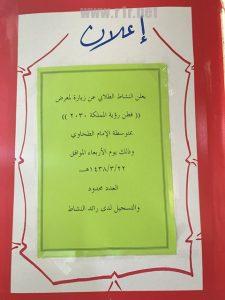 www.rtr.net
إعلان
يعلن النشاط الطلابي عن زيارة لمعرض
(( فطن رؤية المملكة ٢٠٣٠ ))
بمتوسطة الإمام الطحاوي
وذلك يوم الأربعاء الموافق
١٤٣٨/٣/٢٢هـ
العدد محدود
والتسجيل لدى رائد النشاط